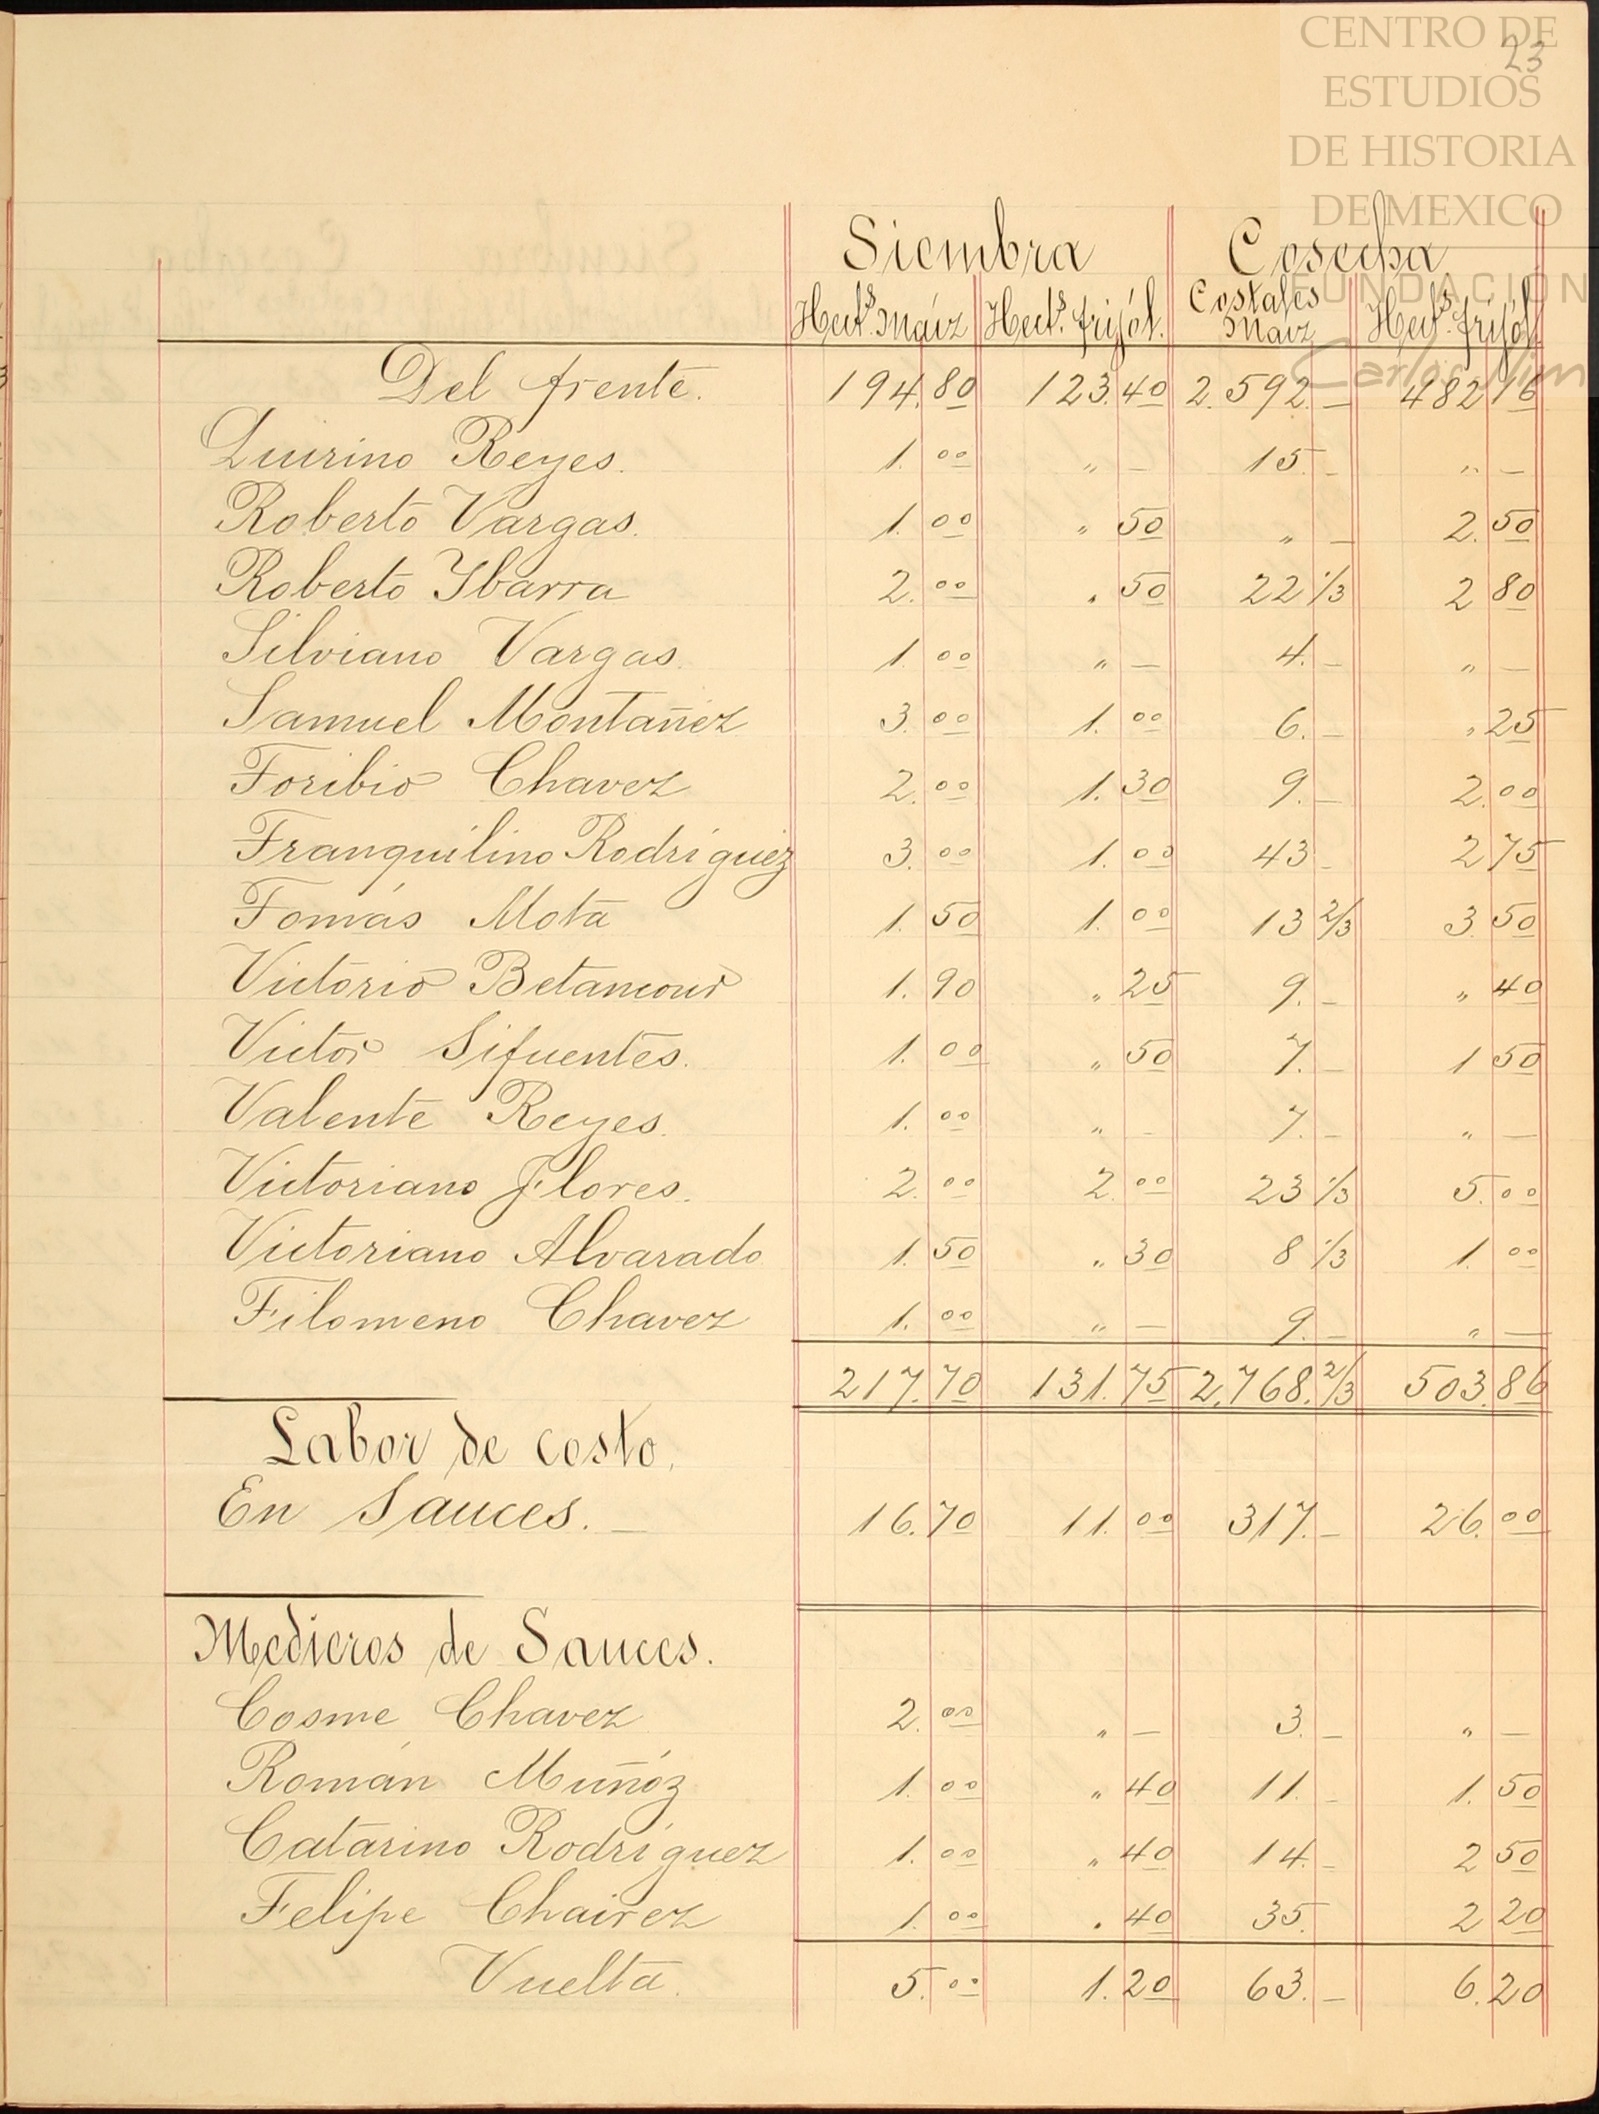 CENTRO DE
ESTUDIOS
DE HISTORIA
DE MEXICO
FUNDACIÓN
Carlos Slim
23
Siembra Cosecha
Hects. Maíz Hects. frijól. Costales Maiz Hects. frijól
Del frente. 194.80 123.40 2.592.— 482 16
Quirino Reyes. 1.00 „ — 15.— „ —
Roberto Vargas. 1.00 „ 50 „ — 2.50
Roberto Ybarra 2.00 . 50 22 1/3 2 80
Silviano Vargas. 1.00 „ — 4.— „ —
Samuel Montañez 3.00 1.00 6.— „ 25
Toribio Chavez 2.00 1.30 9.— 2.00
Tranquilino Rodriguez 3.00 1.00 43 — 2 75
Tomás Mota 1.50 1.00 13 2/3 3.50
Victorio Betancour 1.90 „ 25 9.— „ 40
Victor Sifuentes. 1.00 „ 50 7.— 1 50
Valente Reyes. 1.00 „ — 7.— „ —
Victoriano Flores. 2.00 2.00 23 1/3 5.00
Victoriano Alvarado 1.50 „ 30 8 1/3 1.00
Filomeno Chavez 1.00 „ — 9.— „ —
217.70 131.75 2,768.2/3 503.86
Labor de costo.
En Sauces. — 16.70 11.00 317.— 26.00
Medieros de Sauces.
Cosme Chavez 2.00 „ — 3.— „ —
Román Muñóz 1.00 „ 40 11.— 1.50
Catarino Rodríguez 1.00 „ 40 14.— 2 50
Felipe Chairez 1.00 . 40 35. 2 20
Vuelta. 5.00 1.20 63.— 6.20